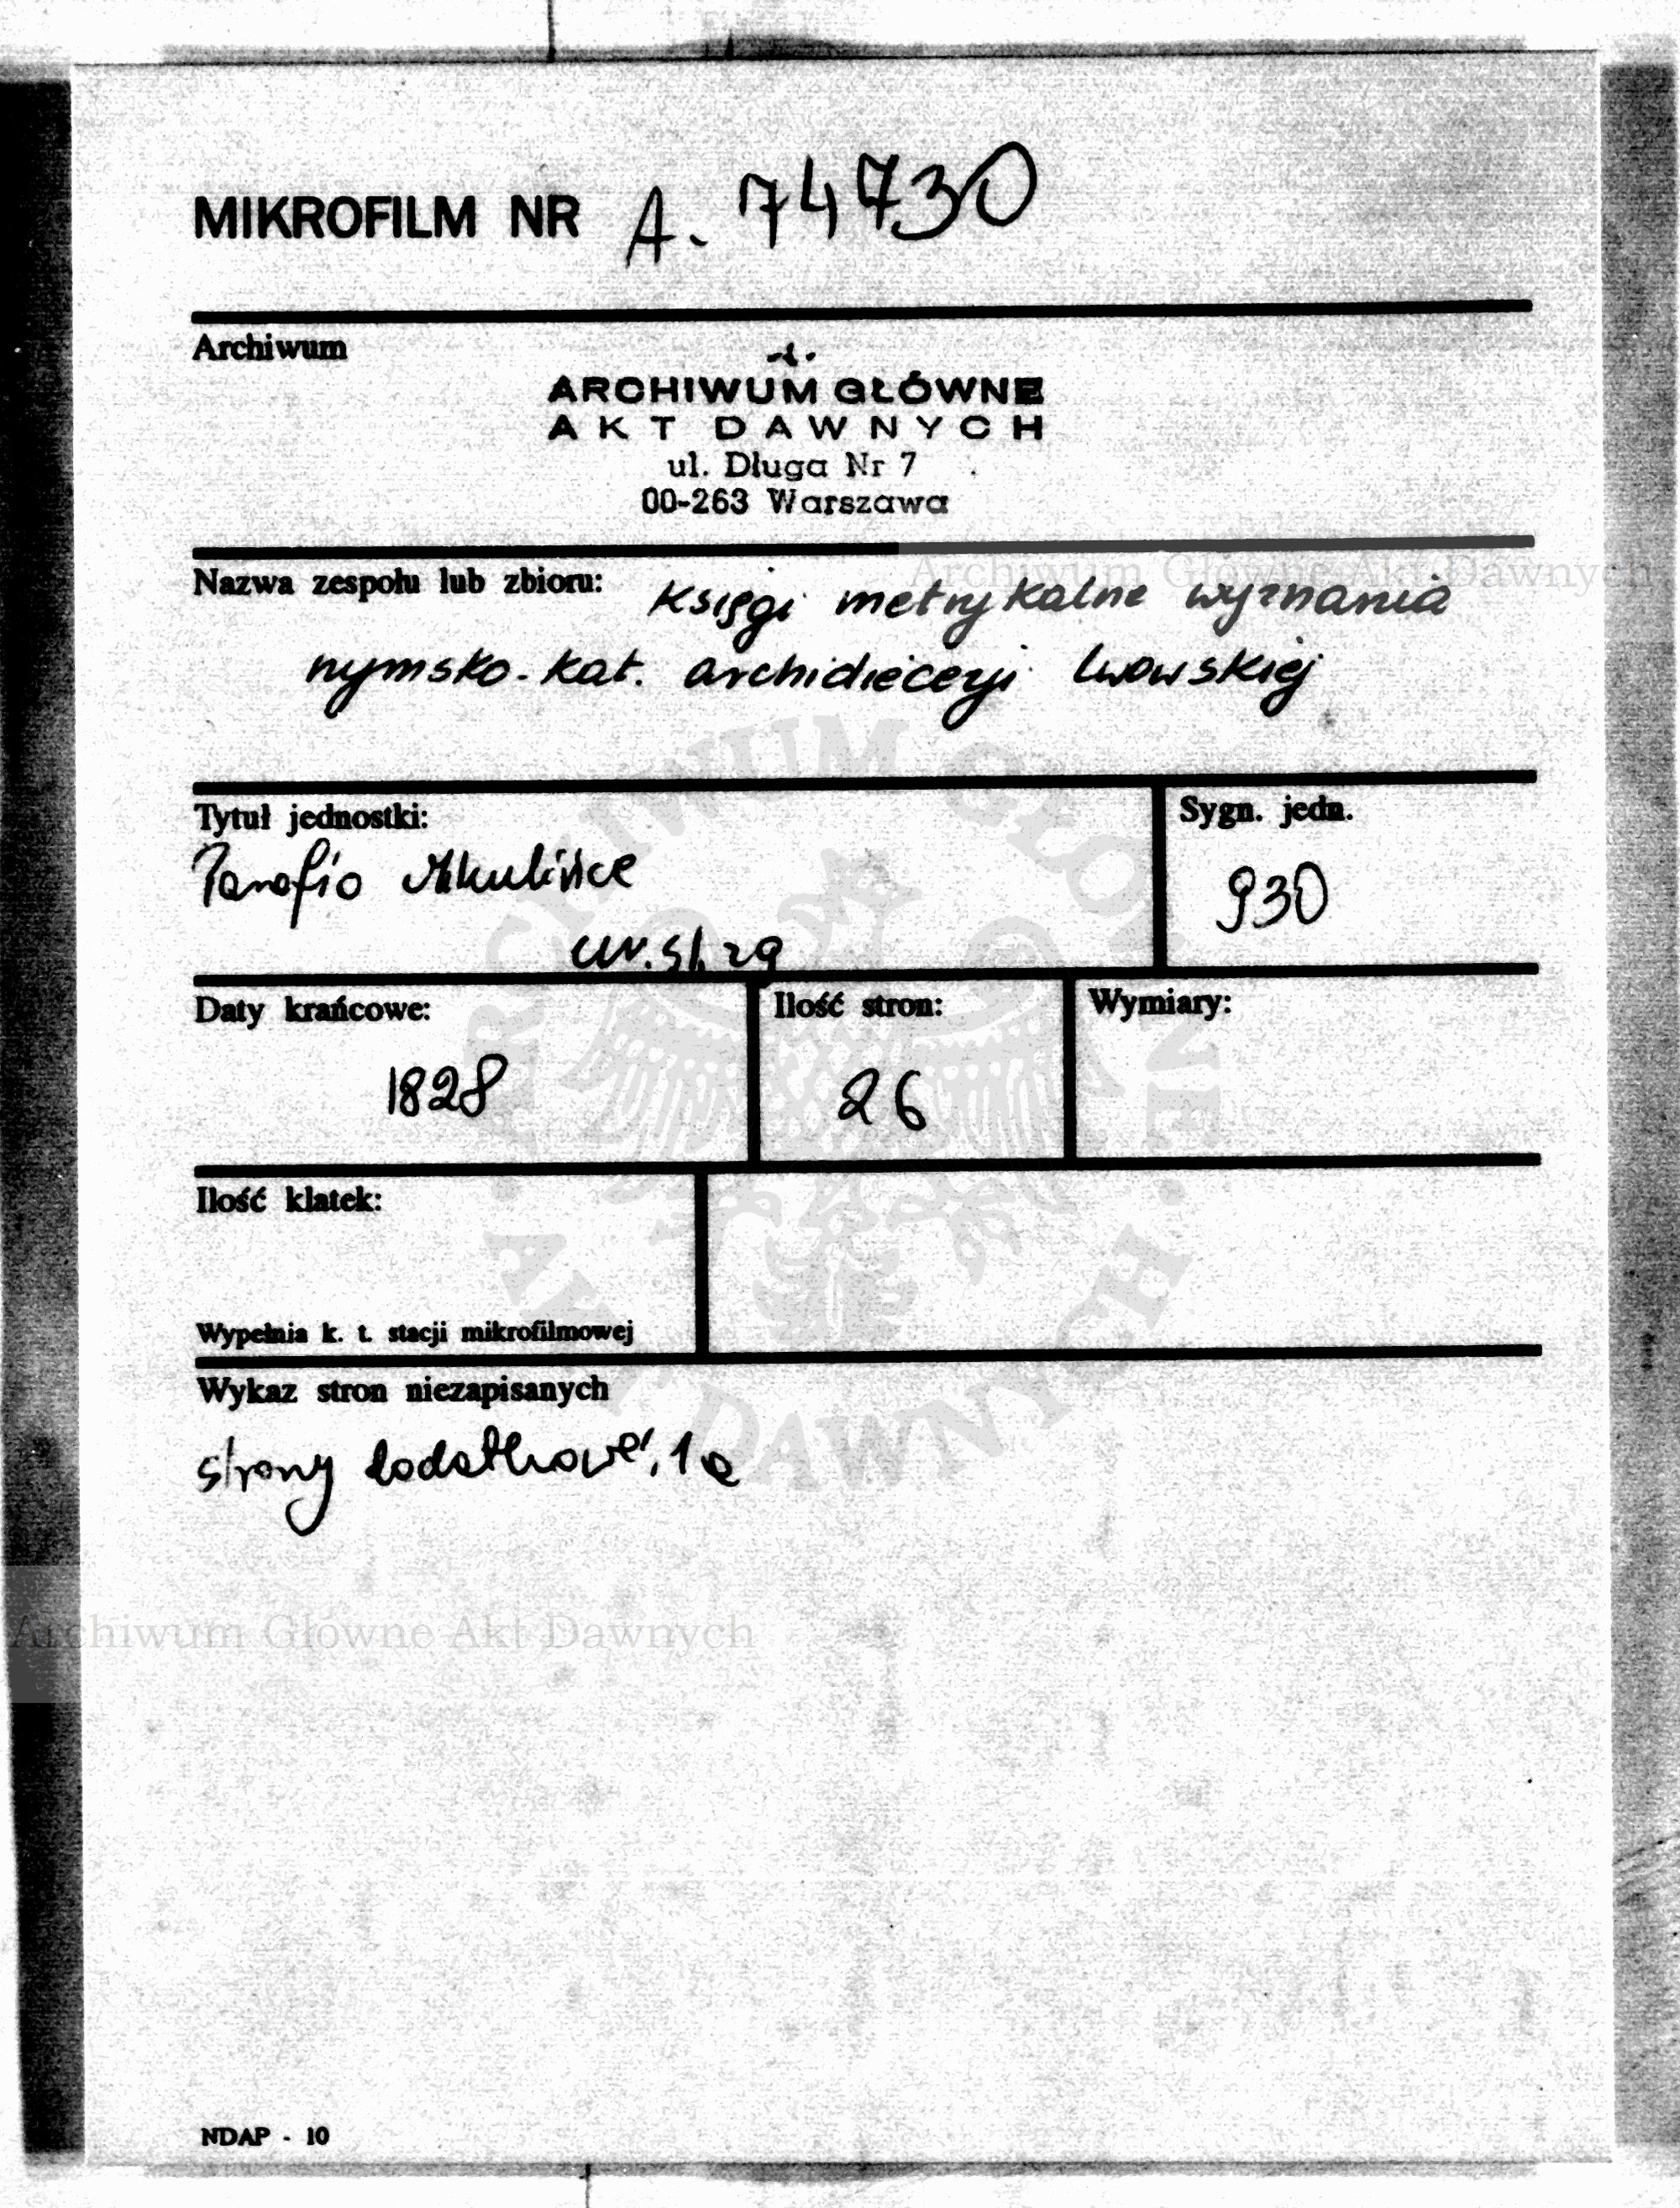 MIKROFILM NR A. 74730
Archiwum
ARCHIWUM GŁÓWNE
AKT DAWNYCH
ul. Długa Nr 7
00-263 Warszawa
Archiwum Główne Akt Dawnych
Nazwa zespołu lub zbioru: Księgi metrykalne wyznania
rzymsko-kat. archidiecezji lwowskiej
Tytuł jednostki:
Sygn. jedn.
Parafia Mikulińce
930
ur. śl. zg
Daty krańcowe:
Ilość stron:
Wymiary:
1828
26
Ilość klatek:
Wypełnia k. t. stacji mikrofilmowej
Wykaz stron niezapisanych
strony dodatkowe: 1a
ARCHIWUM GŁÓWNE AKT DAWNYCH
Archiwum Główne Akt Dawnych
NDAP - 10